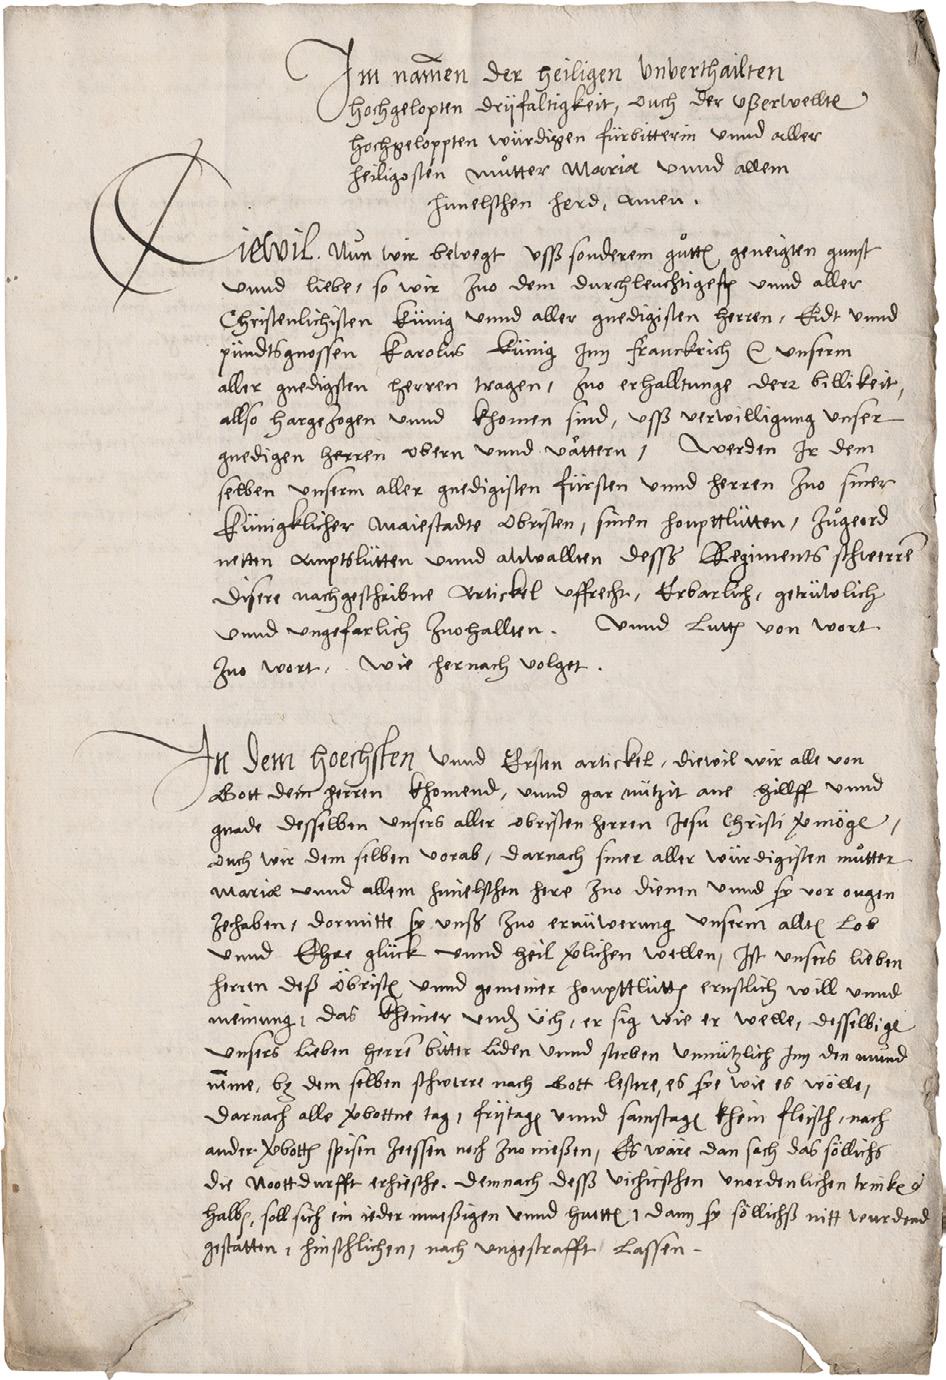 Im namen der heiligen Unverthailten
hochgelopten dryfaltigkeit, ouch der vßerwellte
hochgeloppten würdigen fürbitterin vnnd aller
heiligosten můtter Maria vnnd allem
himelschen herd, Amen.
Diewil. Nun wir bewegt vsß sonderem gůttē geneigten gunst
vnnd liebe, so wir zuo dem durchleuchtigestē vnnd aller
Christenlichisten Künig vnnd aller gnedigisten herren, Eidt vnnd
pündtsgnossen Karolus Künig Inn Franckrich &c unserm
aller gnedigsten herren tragen, zuo erhalltunge derr billikeit,
allso hargezogen vnnd khomen sind, vsß verwilligung Unser
gnedigen herren obern vnnd våttern, Werden Ir dem
selben unserm aller gnedigisten fürsten vnnd herren zuo siner
Künigklicher Maiestadte obristen, sinen houpttlütten, zůgeord
netten Amptslütten vnnd Anwallten desß Regiments schweerrē
disere nachgeschribne Artickel vffrecht, Erbarlich, getrüwlich
vnnd ungefarlich zuohallten. Vnnd Luttē von wort
zuo wort, wie hernach volget.
In dem hoechsten Vnnd Ersten artickel, diewil wir alle von
Gott dem herren khomend, vnnd gar nützit ane hillff vnnd
gnade desselben unsers aller obristen herren Jesu Christi vermögē,
ouch wir dem selben vorab, darnach siner aller würdigisten můtter
Maria vnnd allem himelschen here zuo dienen vnnd sy vor ougen
zehaben, dormitte sy unß zuo ernüwerung unserm alltē Lob
vnnd Ehre glück vnnd heil verlichen wellen, Ist unsers lieben
herren deß Obristē vnnd gemeiner houpttlüttē ernstlich will vnnd
meinung, das kheiner undē üch, er sig wie er welle, desselbigē
unsers lieben herrē bitter liden vnnd sterben unnützlich Inn den mund
nēme, by dem selben schweerre nach Gott lestere, es sye wie es wölle,
Darnach alle verbottne tag, frytagē vnnd samstagē khein fleisch, nach
ander verbottē spisen zeessen noch zuo nießen, Es wäre dan sach das söllichs
die Noottdurfft erhiesche. Demnach desß vichischen unordenlichen trinkēs
halbē, soll sich ein ieder mueßigen vnnd huettē, dann sy söllichß nitt wurdend
gestatten, hinschlichen, nach ungestrafft Lassen.